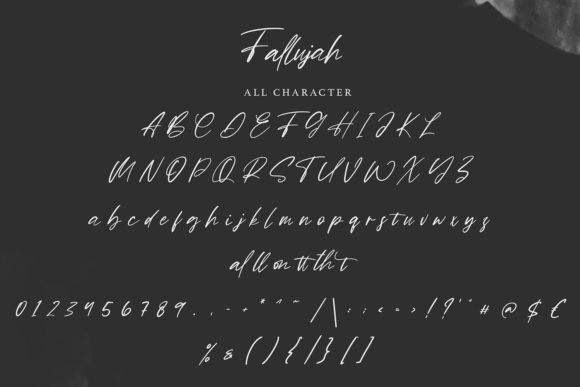 Fallujah
ALL CHARACTER
A B C D E F G H I J K L
M N O P Q R S T U V W X Y Z
a b c d e f g h i j k l m n o p q r s t u v w x y z
al ll on tt th t
0 1 2 3 4 5 6 7 8 9 . , - + * ^ ~ / | \ : ; < = > ! ? ' " # @ $ €
% & ( ) { | } [ ]